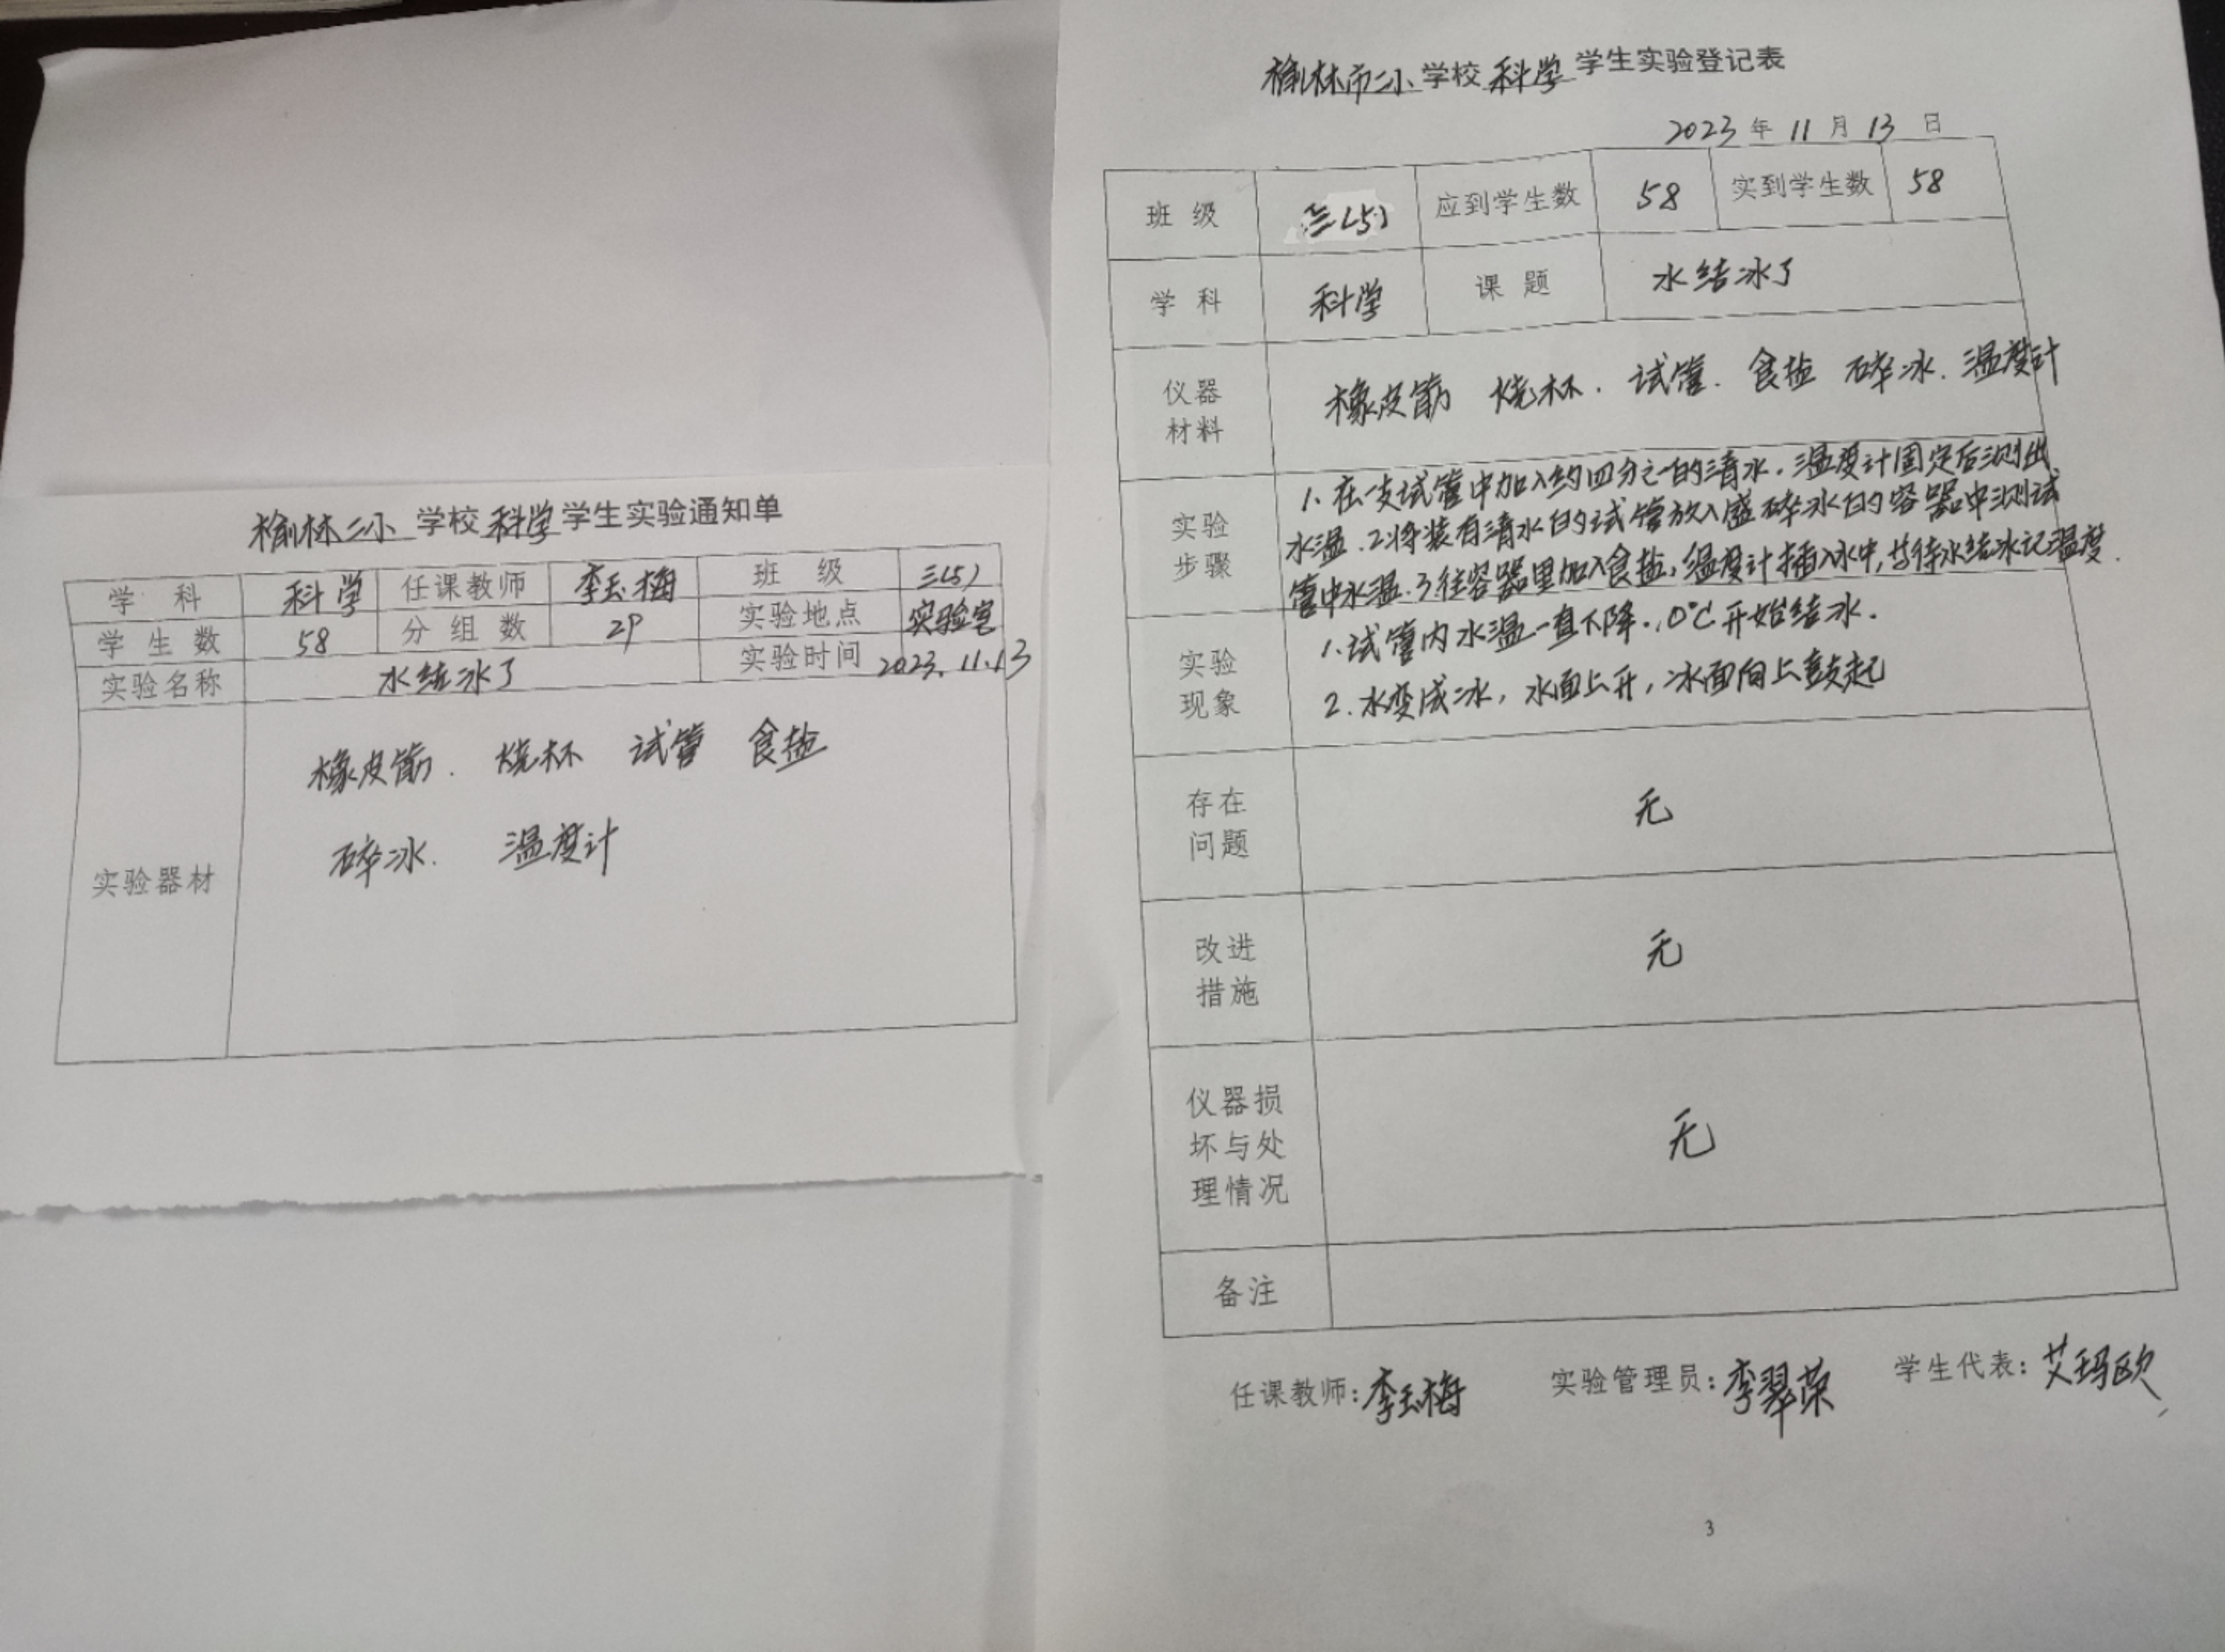 榆林二小学校科学学生实验通知单
学 科 科学 任课教师 李玉梅 班 级 三(5)
学 生 数 58 分 组 数 29 实验地点 实验室
实验名称 水结冰了 实验时间 2023.11.13
实验器材
橡皮筋. 烧杯 试管 食盐
碎冰. 温度计
榆林市二小学校科学学生实验登记表
2023年11月13日
班 级 三(5) 应到学生数 58 实到学生数 58
学 科 科学 课 题 水结冰了
仪器
材料
橡皮筋 烧杯. 试管. 食盐 碎冰. 温度计
实验
步骤
1.在一支试管中加入约四分之一的清水.温度计固定后测出
水温.2.将装有清水的试管放入盛碎冰的容器中测试
管中水温.3往容器里加入食盐,温度计插入冰中,等待水结冰记温度.
实验
现象
1.试管内水温一直下降.0℃开始结冰.
2.水变成冰,水面上升,冰面向上鼓起
存在
问题
无
改进
措施
无
仪器损
坏与处
理情况
无
备注
任课教师:李玉梅 实验管理员:李翠荣 学生代表:艾玛欧
3